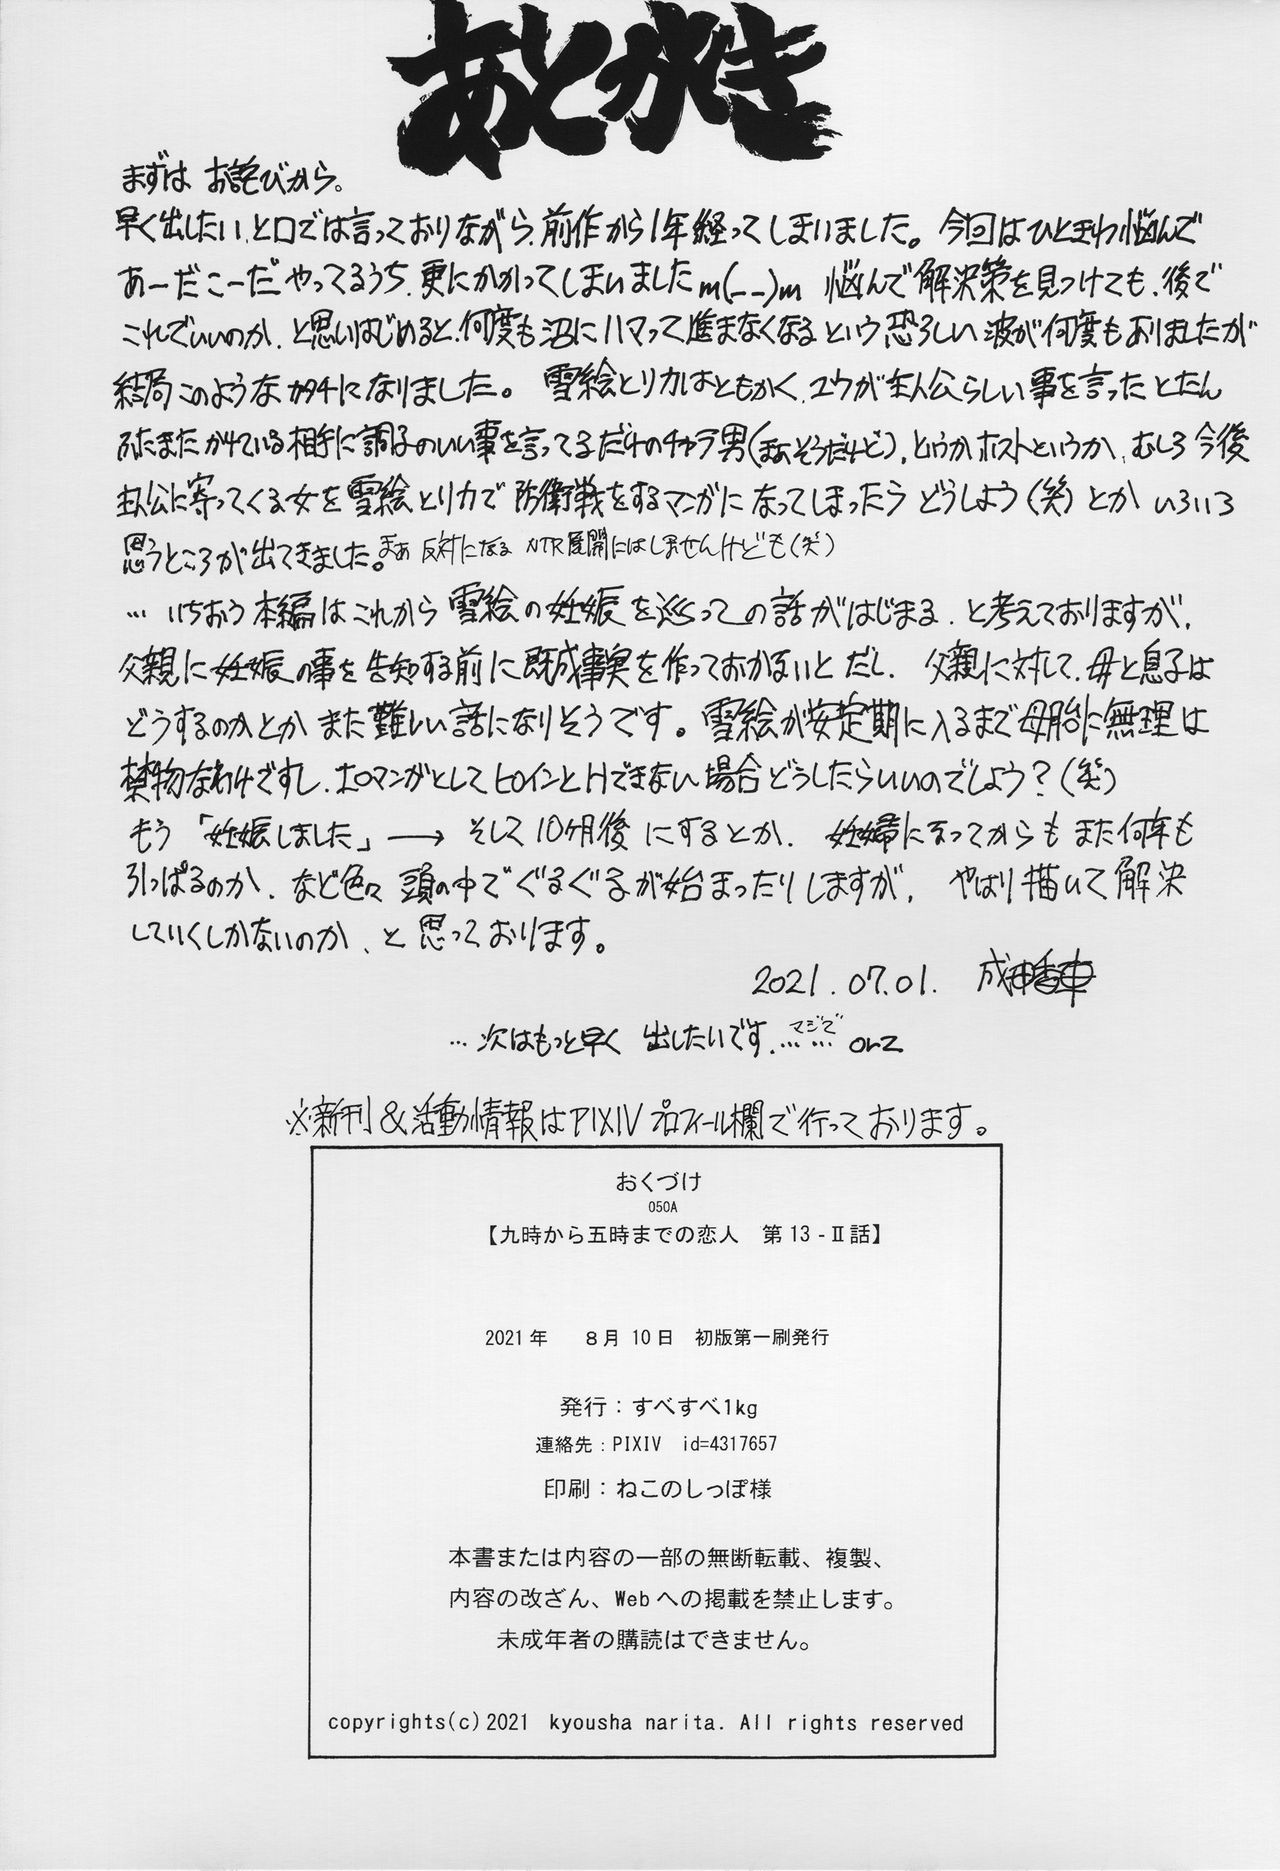 あとがき
まずは お詫びから。
早く出したい、と口では言っておりながら、前作から1年経ってしまいました。今回はひときわ悩んで
あーだこーだ やってるうち、更にかかってしまいましたm(_ _)m 悩んで解決策を見つけても、後で
これでいいのか、と思いはじめると、何度も沼にハマって進まなくなる という恐ろしい波が何度もありましたが
結局このようなカタチになりました。 雪絵とリカはともかく、ユウが主人公らしい事を言ったとたん
ふたまたかけている相手に調子のいい事を言ってるだけのチャラ男(まあそうだけど)、というかホストというか、むしろ今後
主人公に寄ってくる女を雪絵とリカで防衛戦をするマンガになってしまったらどうしよう(笑)とか いろいろ
思うところが出てきました。まぁ 反対になる NTR展開にはしませんけども(笑)
… いちおう本編はこれから 雪絵の妊娠を巡っての話がはじまる、と考えておりますが、
父親に妊娠の事を告知する前に既成事実を作っておかないとだし、父親に対して、母と息子は
どうするのかとか また難しい話になりそうです。雪絵が安定期に入るまで母胎に無理は
禁物なわけですし、エロマンガとしてヒロインとHできない場合どうしたらいいのでしょう?(笑)
もう「妊娠しました」→ そして10ヶ月後 にするとか、妊婦になってからもまた何年も
引っぱるのか、など色々 頭の中でぐるぐるが始まったりしますが、 やはり描いて解決
していくしかないのか、と 思っております。
2021.07.01. 成田香車
… 次はもっと早く 出したいです、マジで…… orz
※新刊&活動情報はPIXIVプロフィール欄で行っております。
おくづけ
050A
【九時から五時までの恋人 第13-Ⅱ話】
2021年 8月10日 初版第一刷発行
発行:すべすべ1kg
連絡先:PIXIV id=4317657
印刷:ねこのしっぽ様
本書または内容の一部の無断転載、複製、
内容の改ざん、Webへの掲載を禁止します。
未成年者の購読はできません。
copyrights(c)2021 kyousha narita. All rights reserved